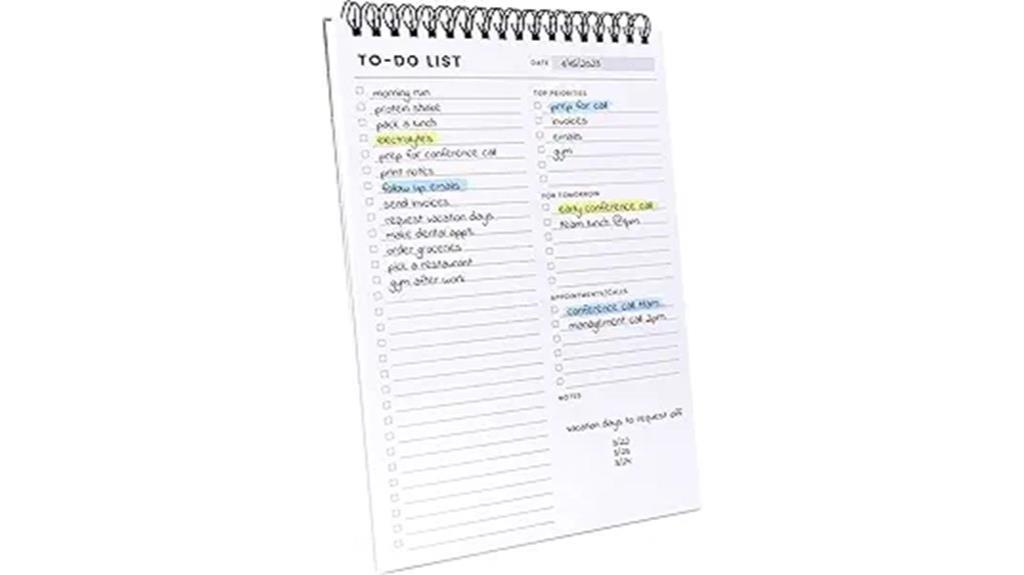 TO-DO LIST
DATE
morning run
protein shake
pack a lunch
electrolytes
prep for conference call
print notes
follow up emails
send invoices
request vacation days
make dental appt.
order groceries
pick a restaurant
gym after work
TOP PRIORITIES
prep for call
invoices
emails
gym
FOR TOMORROW
early conference call
team lunch @1pm
APPOINTMENTS/CALLS
conference call 11am
management call 2pm
NOTES
vacation days to request off